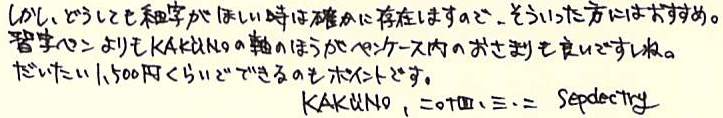 しかし、どうしても細字がほしい時は確かに存在しますので、そういった方にはおすすめ。
習字ペンよりもKAKÜNOの軸のほうがペンケース内のおさまりも良いですしね。
だいたい1,500円くらいでできるのもポイントです。
KAKÜNO, 二〇一四、三・二 Sepdectry